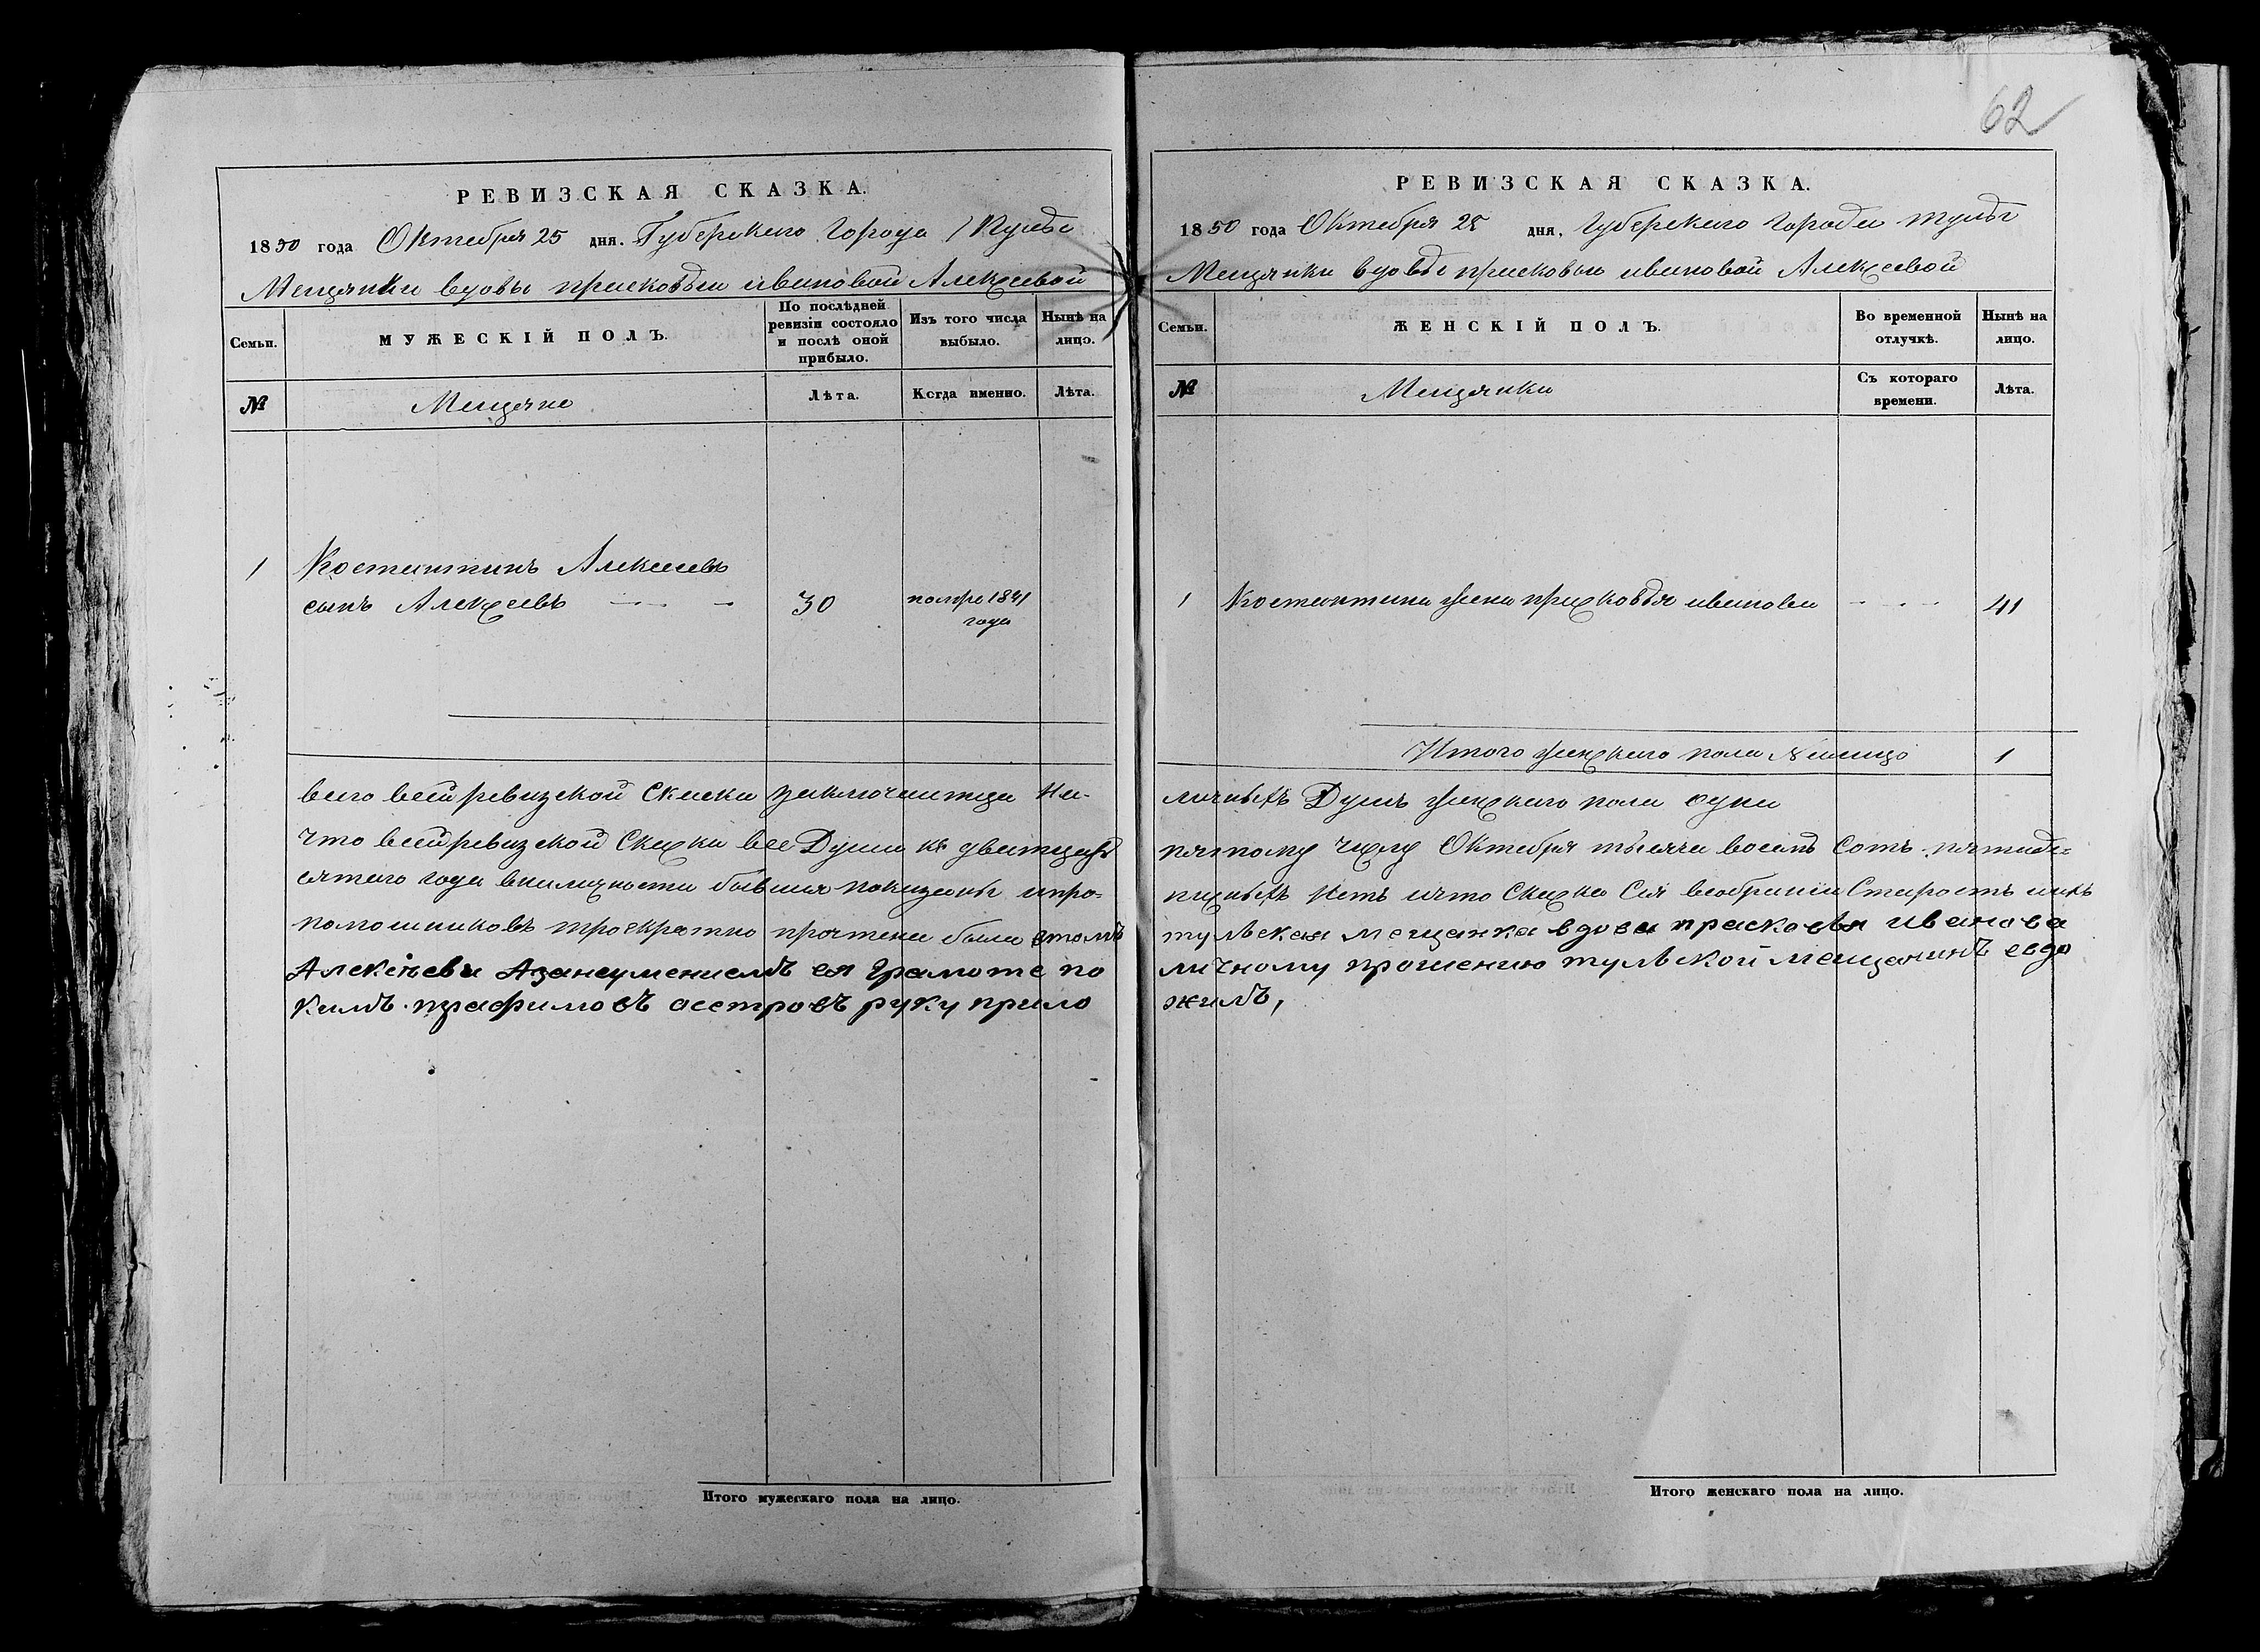 62
РЕВИЗСКАЯ СКАЗКА.
1850 года Октебря 25 дня. Губерскаго Города Тулы
Мещянки вдовы прасковьи ивановой Алексеевой
Семьи.
МУЖЕСКІЙ ПОЛЪ.
По послѣдней ревизіи состояло и послѣ оной прибыло.
Изъ того числа выбыло.
Нынѣ на лицо.
№
Мещяне
Лѣта.
Когда именно.
Лѣта.
1 Костантинъ Алексеевъ
сынъ Алексеевъ 30 помре 1841
года
всего всей ревизской Скаски заключаитца На-
что всей ревизской Скаски все Души къ дватцать
сятаго года вналичности бывшия показаны ипро-
помошниковъ троекратно прочтена была втомъ
Алексѣева Азанеумениемъ ея Грамоте по
кимъ трафимовъ астровъ руку прило
Итого мужескаго пола на лицо.
РЕВИЗСКАЯ СКАЗКА.
1850 года Октебря 25 дня, Губерскаго Города тулы
Мещянки вдовы прасковьи ивановой Алексеевой
Семьи.
ЖЕНСКІЙ ПОЛЪ.
Во временной отлучкѣ.
Нынѣ на лицо.
№
Мещянки
Съ котораго времени.
Лѣта.
1 Костантина жена прасковья иванова 41
Итого женскаго пола налицо 1
личныхъ Душъ женскаго пола одна
пятому числу Октебря тысяча восемь Сотъ пятиде=
писныхъ Нетъ ичто Скаска Сія всобраніи Старостъ ихъ
тульская мещанка вдова прасковья иванова
личному прошению тульской мещанинъ евдо
жилъ,
Итого женскаго пола на лицо.